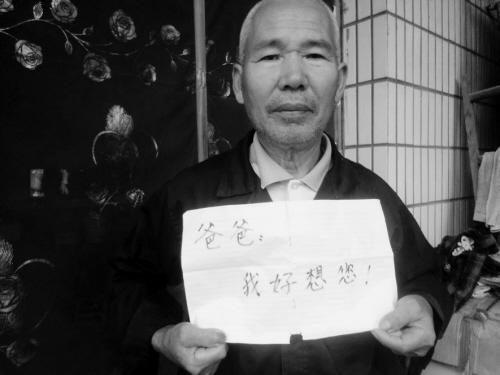 爸爸：
我好想您！